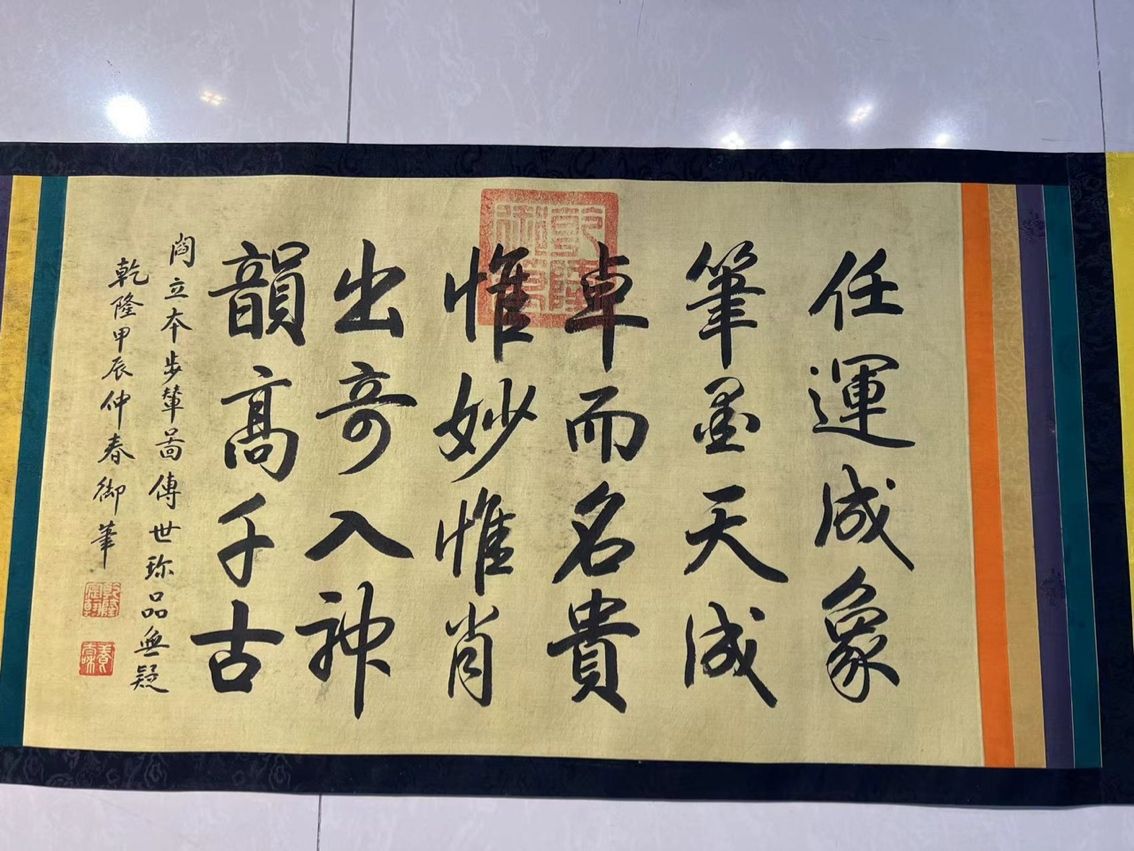 任運成象
筆墨天成
卓而名貴
惟妙惟肖
出奇入神
韻高千古
閻立本步輦圖傳世珎品無疑
乾隆甲辰仲春御筆
乾隆宸翰